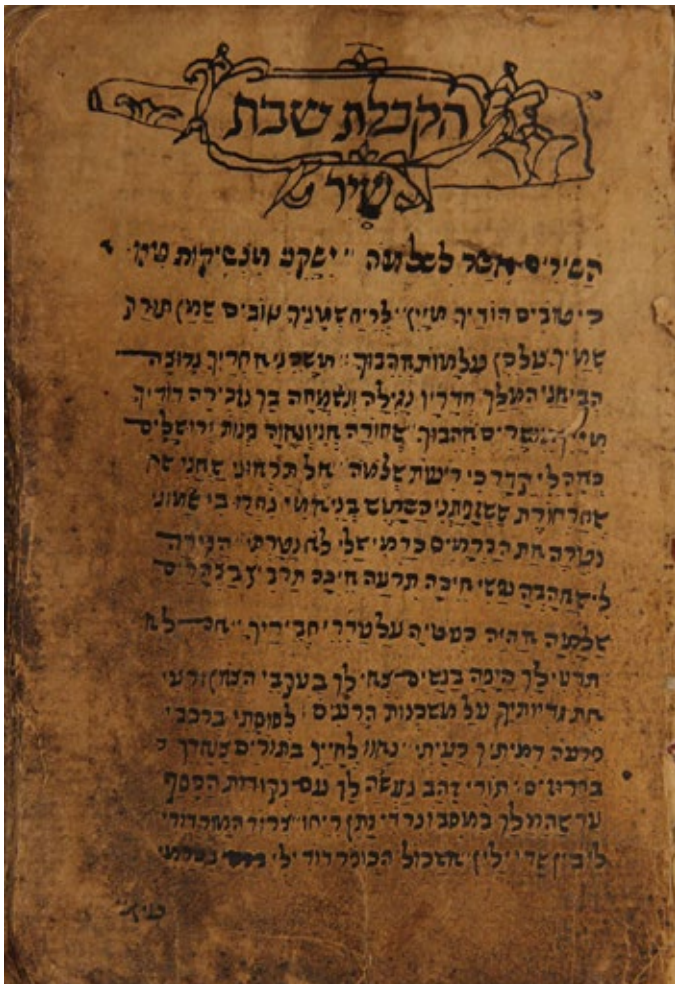 הקבלת שבת
שיר
השירים אשר לשלמה ישקני מנשיקות פיהו
כי טובים דודיך מיין לריח שמניך טובים שמן תורק
שמיך על כן עלמות אהבוך משכני אחריך נרוצה
הביאני המלך חדריו נגילה ונשמחה בך נזכירה דודיך
מיין מישרים אהבוך שחורה אני ונאוה בנות ירושלים
כאהלי קדר כי שלמה אל תראוני שאני
שחרחורת ששזפתני השמש בני אמי נחרו בי שמוני
נטרה את הכרמים כרמי שלי לא נטרתי הגידה
לי שאהבה נפשי איכה תרעה איכה תרביץ בצהרים
שלמה אהיה כעטיה על עדרי חביריך לא
תדעי לך היפה בנשים צאי לך בעקבי הצאן ורעי
את גדיותיך על משכנות הרעים לסוסתי ברכבי
פרעה דמיתיך רעיתי נאוו לחייך בתורים צוארך
בחרוזים תורי זהב נעשה לך עם נקודות הכסף
עד שהמלך במסבו נרדי נתן ריחו צרור המור דודי
לי בין שדי ילין אשכול הכופר דודי לי בכרמי